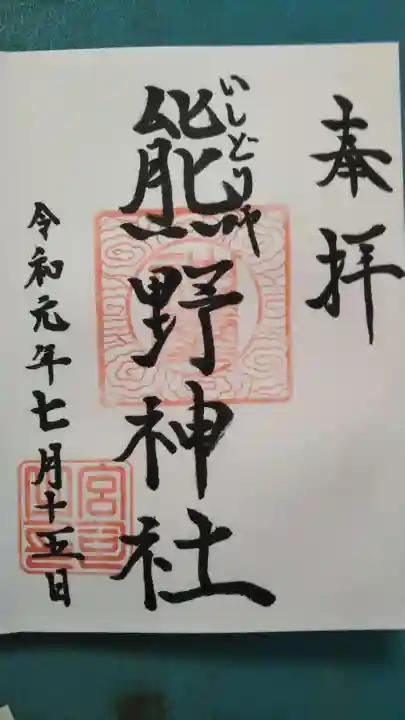 奉拝
いしどり町
熊野神社
令和元年七月十五日